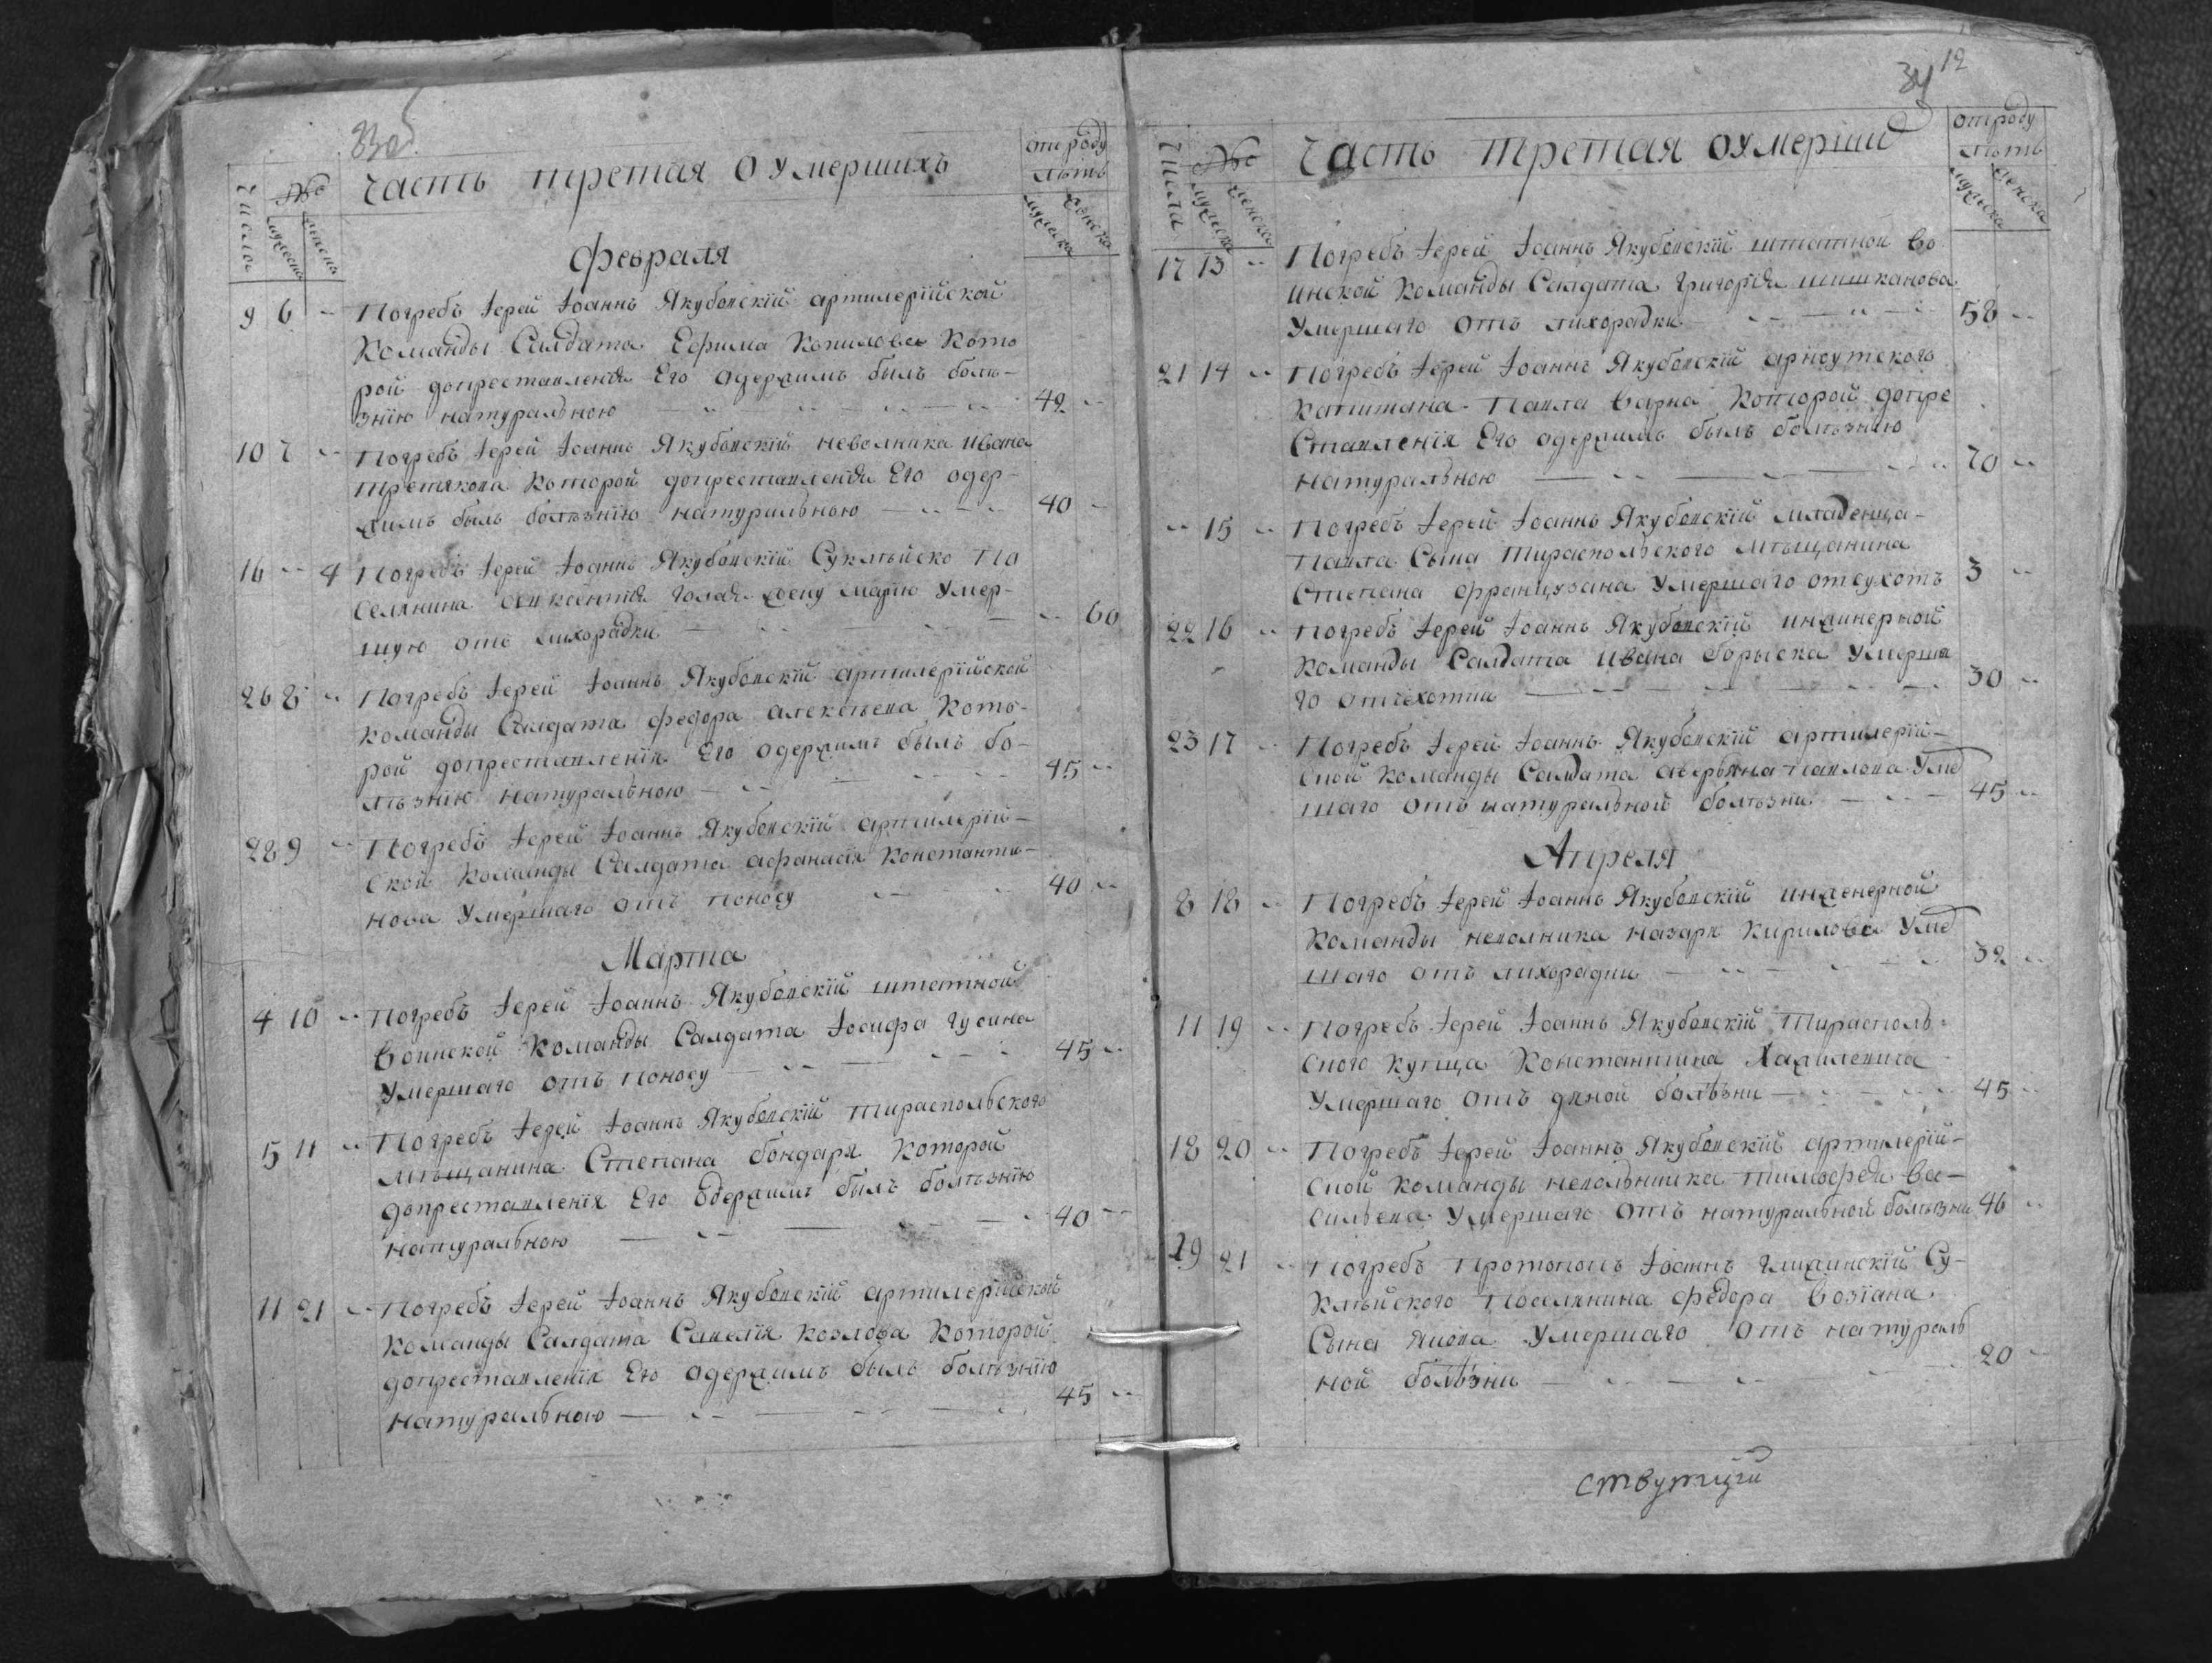 33об
Числа № мужеска женска Часть третая о умершихъ отроду лѣтъ мужеска женска
Февраля
9 6 Погребъ Іерей Іоаннъ Якубовскій артилерійской
Команды Салдата Ефима Копилова Кото
рой допреставленія Его одержимъ былъ болѣ-
знію натуральною 42
10 7 Погребъ Іерей Іоаннъ Якубовскій неволника Ивана
Третякова Которой допреставленія Его одер-
жимъ былъ болѣзнію натуральною 40
16 4 Погребъ Іерей Іоаннъ Якубовскій Суклѣйско По
Селянина Авксентія Голая жену Марію Умер-
шую отъ лихорадки 60
26 8 Погребъ Іерей Іоаннъ Якубовскій артилерійской
Команды Салдата Федора Алексѣева Кото-
рой допреставленія Его одержимъ былъ бо-
лѣзнію натуральною 45
28 9 Погребъ Іерей Іоаннъ Якубовскій артилерій-
Ской Команды Салдата Афанасія Константи-
нова Умершаго отъ поносу 40
Марта
4 10 Погребъ Іерей Іоаннъ Якубовскій штатной
Воинской Команды Салдата Іосифа Гусина
Умершаго отъ поносу 45
5 11 Погребъ Іерей Іоаннъ Якубовскій Тираспольского
мѣщанина Степана Бондаря Которой
допреставленія Его Одержимъ былъ болѣзнію
натуральною 40
11 21 Погребъ Іерей Іоаннъ Якубовскій артилерійской
Команды Салдата Савелія Козлова Которой
допреставленія Его одержимъ былъ болѣзнію
натуральною 45
34 12
Числа № мужеска женска Часть третая оумерши отроду лѣтъ мужеска женска
17 13 Погребъ Іерей Іоаннъ Якубовскій штатной Во
инской Команды Салдата Григорія Шишканова
Умершаго отъ лихорадки 58
21 14 Погребъ Іерей Іоаннъ Якубовскій арноутского
Капитана Павла Варна Которой допре
Ставленія Его одержимъ былъ болѣзнію
натуральною 70
15 Погребъ Іерей Іоаннъ Якубовскій младенца
Павла Сына Тираспольского Мѣщанина
Степана Французана Умершаго отсухотъ 3
22 16 Погребъ Іерей Іоаннъ Якубовскій инжинерной
Команды Салдата Ивана Борыска Умерша
го 30
23 17 Погребъ Іерей Іоаннъ Якубовскій артилерій-
Ской Команды Салдата Аверьяна Павлова Уме
шаго отъ натуральной болѣзни 45
Апреля
8 18 Погребъ Іерей Іоаннъ Якубовскій инженерной
Команды неволника Назаря Кирилова Уме
шаго отъ лихорадки 32
11 19 Погребъ Іерей Іоаннъ Якубовскій Тирасполь-
Ского Купца Константина Хажилевича
Умершаго отъ дяной болѣзни 45
18 20 Погребъ Іерей Іоаннъ Якубовскій артилерій-
Ской Команды невольника Тимофея Ва-
Сильева Умершаго отъ натуральной болѣзни 46
29 21 Погребъ Протопопъ Іоаннъ Глижинскій Су-
Клѣйского Поселянина Федора Возіана
Сына Якова Умершаго отъ натураль
ной болѣзни 20